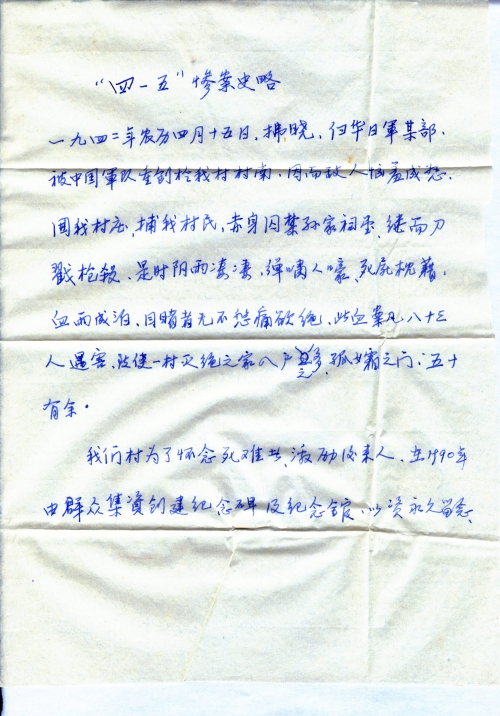 “四一五”惨案史略
一九四二年农历四月十五日、拂晓、侵华日軍某部、
被中国軍队重創於我村村南、因而敌人恼羞成怒、
围我村庄、捕我村民、赤身囚禁孙家祠堂、继而刀
戳枪殺、是时阴雨凄凄、弹啸人嚎、死屍枕藉、
血而成泊、目睹者无不悲痛欲绝、此血案凡八十三
人遇害、致使一村灭绝之家八户之多、孤孀之门、五十
有余。
我们村为了怀念死难者、激励后来人、在1990年
由群众集資創建纪念碑及纪念馆、以资永久留念、